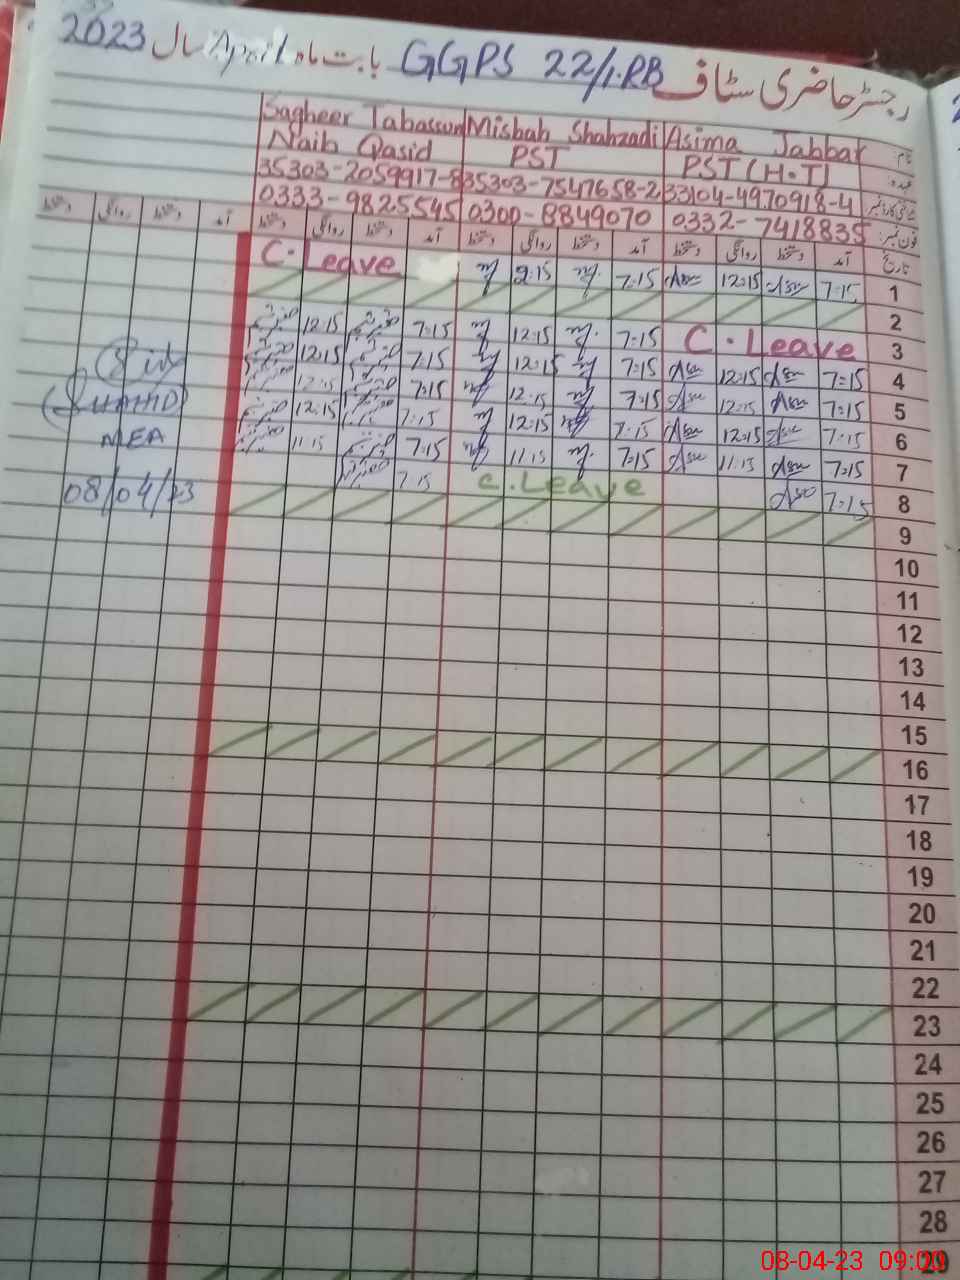 رجسٹر حاضری سٹاف GGPS 22/1.RB بابت ماہ April سال 2023
نام Asima Jabbar Misbah Shahzadi Sagheer Tabassum
عہدہ PST (H.T) PST Naib Qasid
33104-4970918-4 35303-7547658-2 35303-2059917-8
فون نمبر 0332-7418835 0300-8849070 0333-9825545
تاریخ آمد دستخط روانگی دستخط آمد دستخط روانگی دستخط آمد دستخط روانگی دستخط آمد دستخط روانگی دستخط
1 7:15 12:15 7:15 2:15 C. Leave
2
3 C. Leave 7:15 12:15 7:15 12:15
4 7:15 12:15 7:15 12:15 7:15 12:15
5 7:15 12:15 7:15 12:15 7:15 12:15
6 7:15 12:15 7:15 12:15 7:15 12:15
7 7:15 11:15 7:15 11:15 7:15 11:15
8 7:15 C. Leave 7:15
MEA
08/04/23
9
10
11
12
13
14
15
16
17
18
19
20
21
22
23
24
25
26
27
28
29
08-04-23 09:00